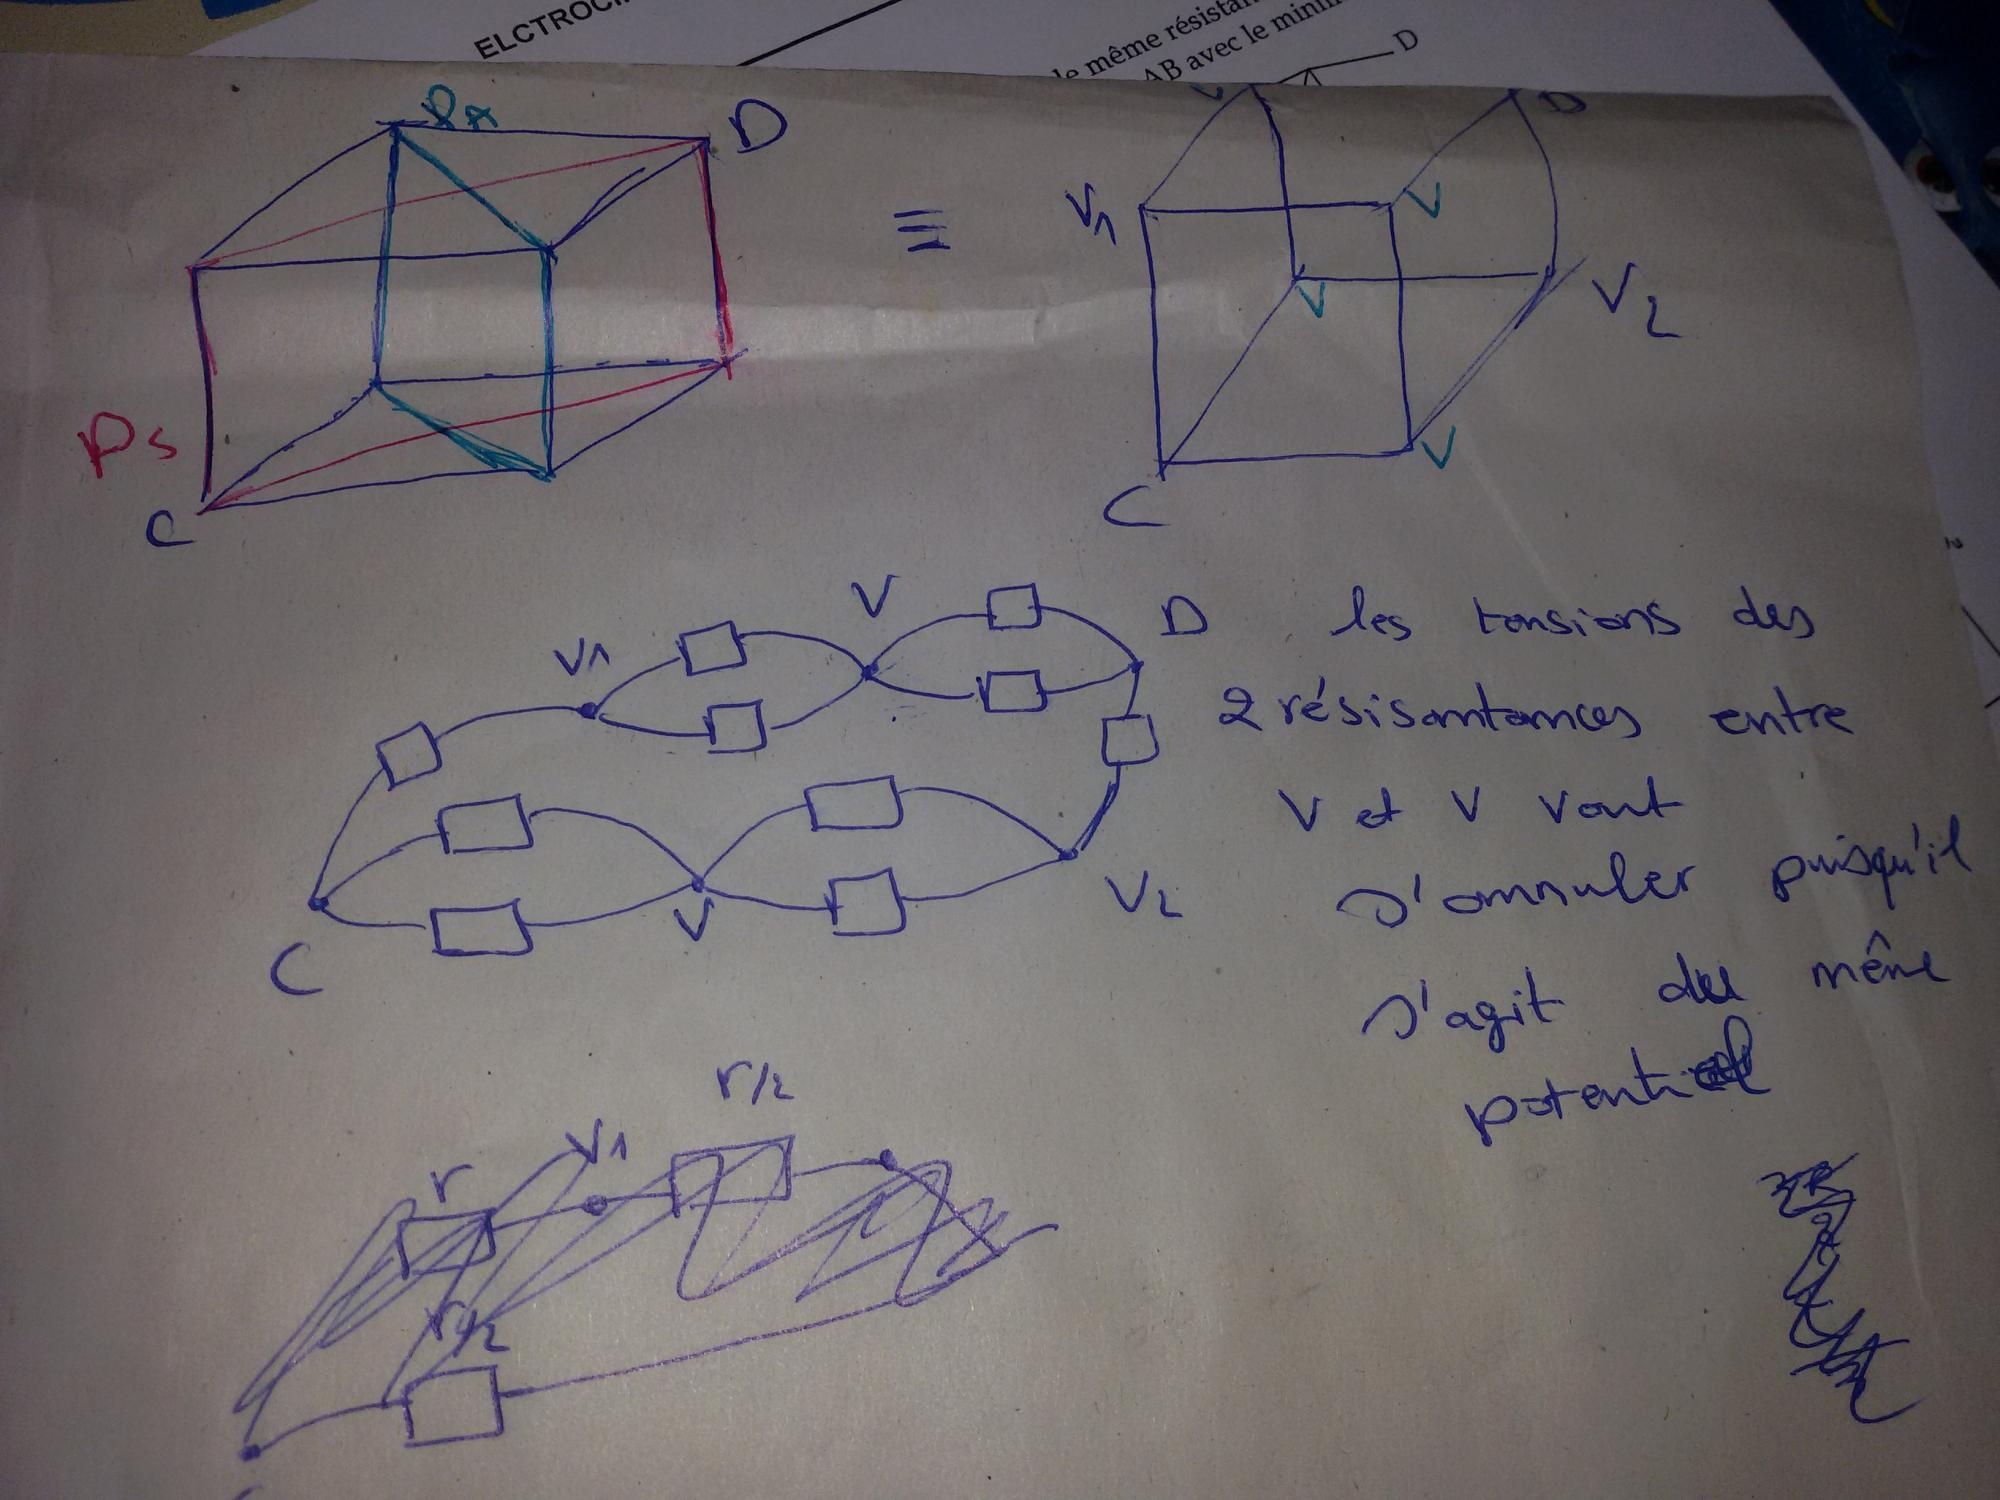 ELCTROCI
le même résistan
AB avec le minim
D
PA
D
D
V1
V
≡
V
V2
Ps
V
C
C
V
D
V1
les tensions des
2 résisantances entre
V et V vont
s'annuler puisqu'il
V
V2
C
s'agit du même
potentiel
r/2
V1
r
r/2